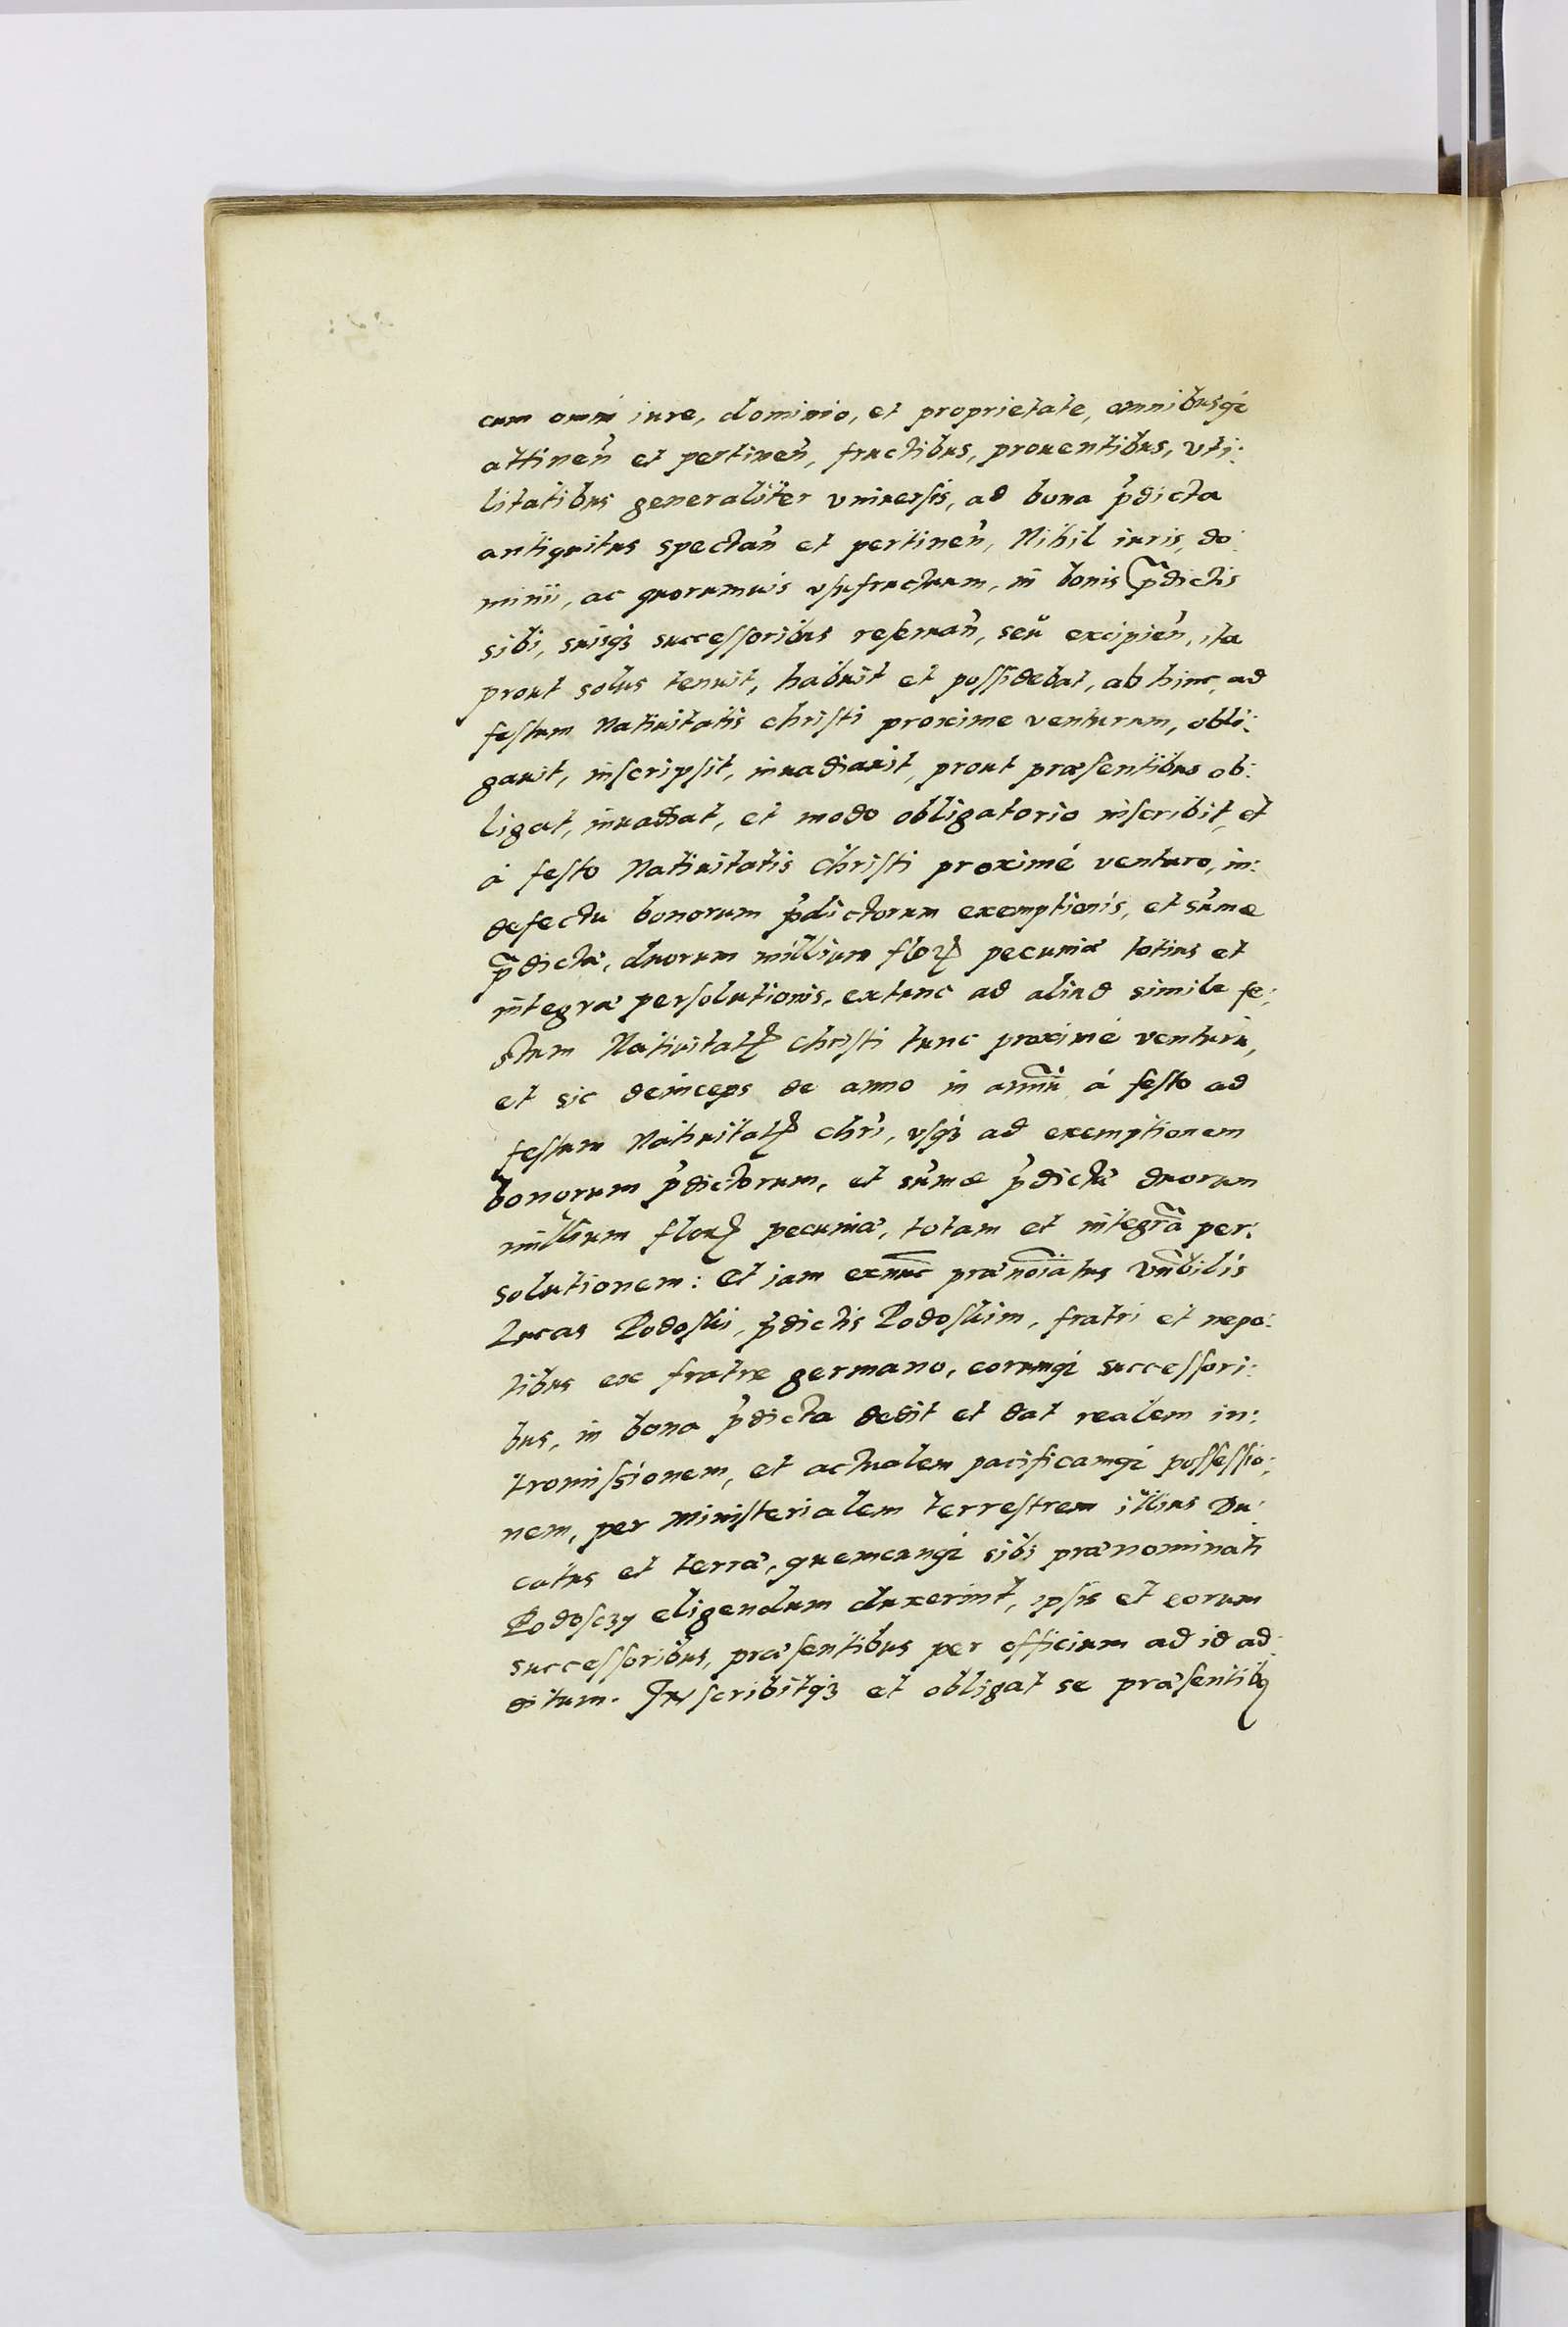 cum omni iure, dominio, et proprietate, omnibusq́
attineñ et pertineñ, fructibus, prouentibus, vti:
litatibus generaliter vniuersis, ad bona p̃dicta
antiquitus spectañ et pertineñ, Nihil iuris, do:
minii, ac quorumuis vsufructuum, in bonis p̃dictis
sibi, suisq́ʒ successoribus reseruañ, seu excipieñ, ita
prout solus tenuit, habuit et possidebat, ab hinc, ad
festum Natiuitatis christi proxime venturum, obli:
gauit, inscripsit, inuadiauit, prout præsentibus ob:
ligat, inuadiat, et modo obligatorio inscribit, et
á festo Natiuitatis Christi proximé venturo, in:
defectu bonorum p̃dictorum exemptionis, et sum̃æ
p̃dictæ, duorum millium floꝝ pecuniæ totius et
integræ persolutionis, extunc ad aliud simile fe:
stum Natiuitatꝭ christi tunc proximé venturũ,
et sic deinceps de anno in annũ á festo ad
festum Natiuitatꝭ chr̃i, vsq́ʒ ad exemptionem
bonorum p̃dictorum, et sum̃æ p̃dictæ duorum
millium floꝝ pecuniæ, totam et integrã per:
solutionem: Et iam exnuc̃ prænoĩatus Vnãbilis
Lucas Podoski, p̃dictis Podoskim, fratri et nepo:
tibus ex fratre germano, eorumq́ successori:
bus, in bona p̃dicta dedit et dat realem in:
tromissionem, et actualem pacificamq́ possessio:
nem, per ministerialem terrestrem illius Du:
catus et terræ, quemcunq́ sibi prænominati
Podosczy eligendum duxerint, ipsis et eorum
successoribus, præsentibus per officium ad id ad:
ditum. Inscribitq́ʒ et obligat se præsentibꝰ